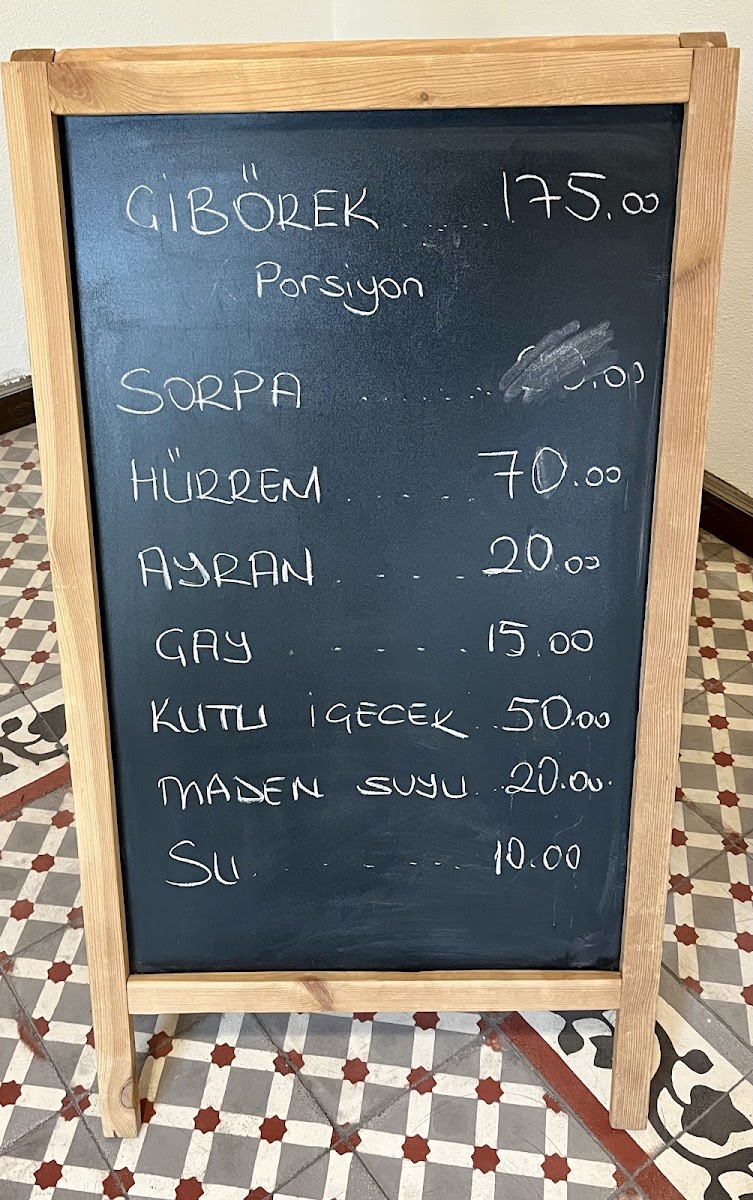 GİBÖREK ........ 175.00
Porsiyon
SORPA ........ .00
HÜRREM ..... 70.00
AYRAN .... 20.00
GAY ..... 15.00
KUTU İGECEK .. 50.00
MADEN SUYU .. 20.00.
SU ........ 10.00